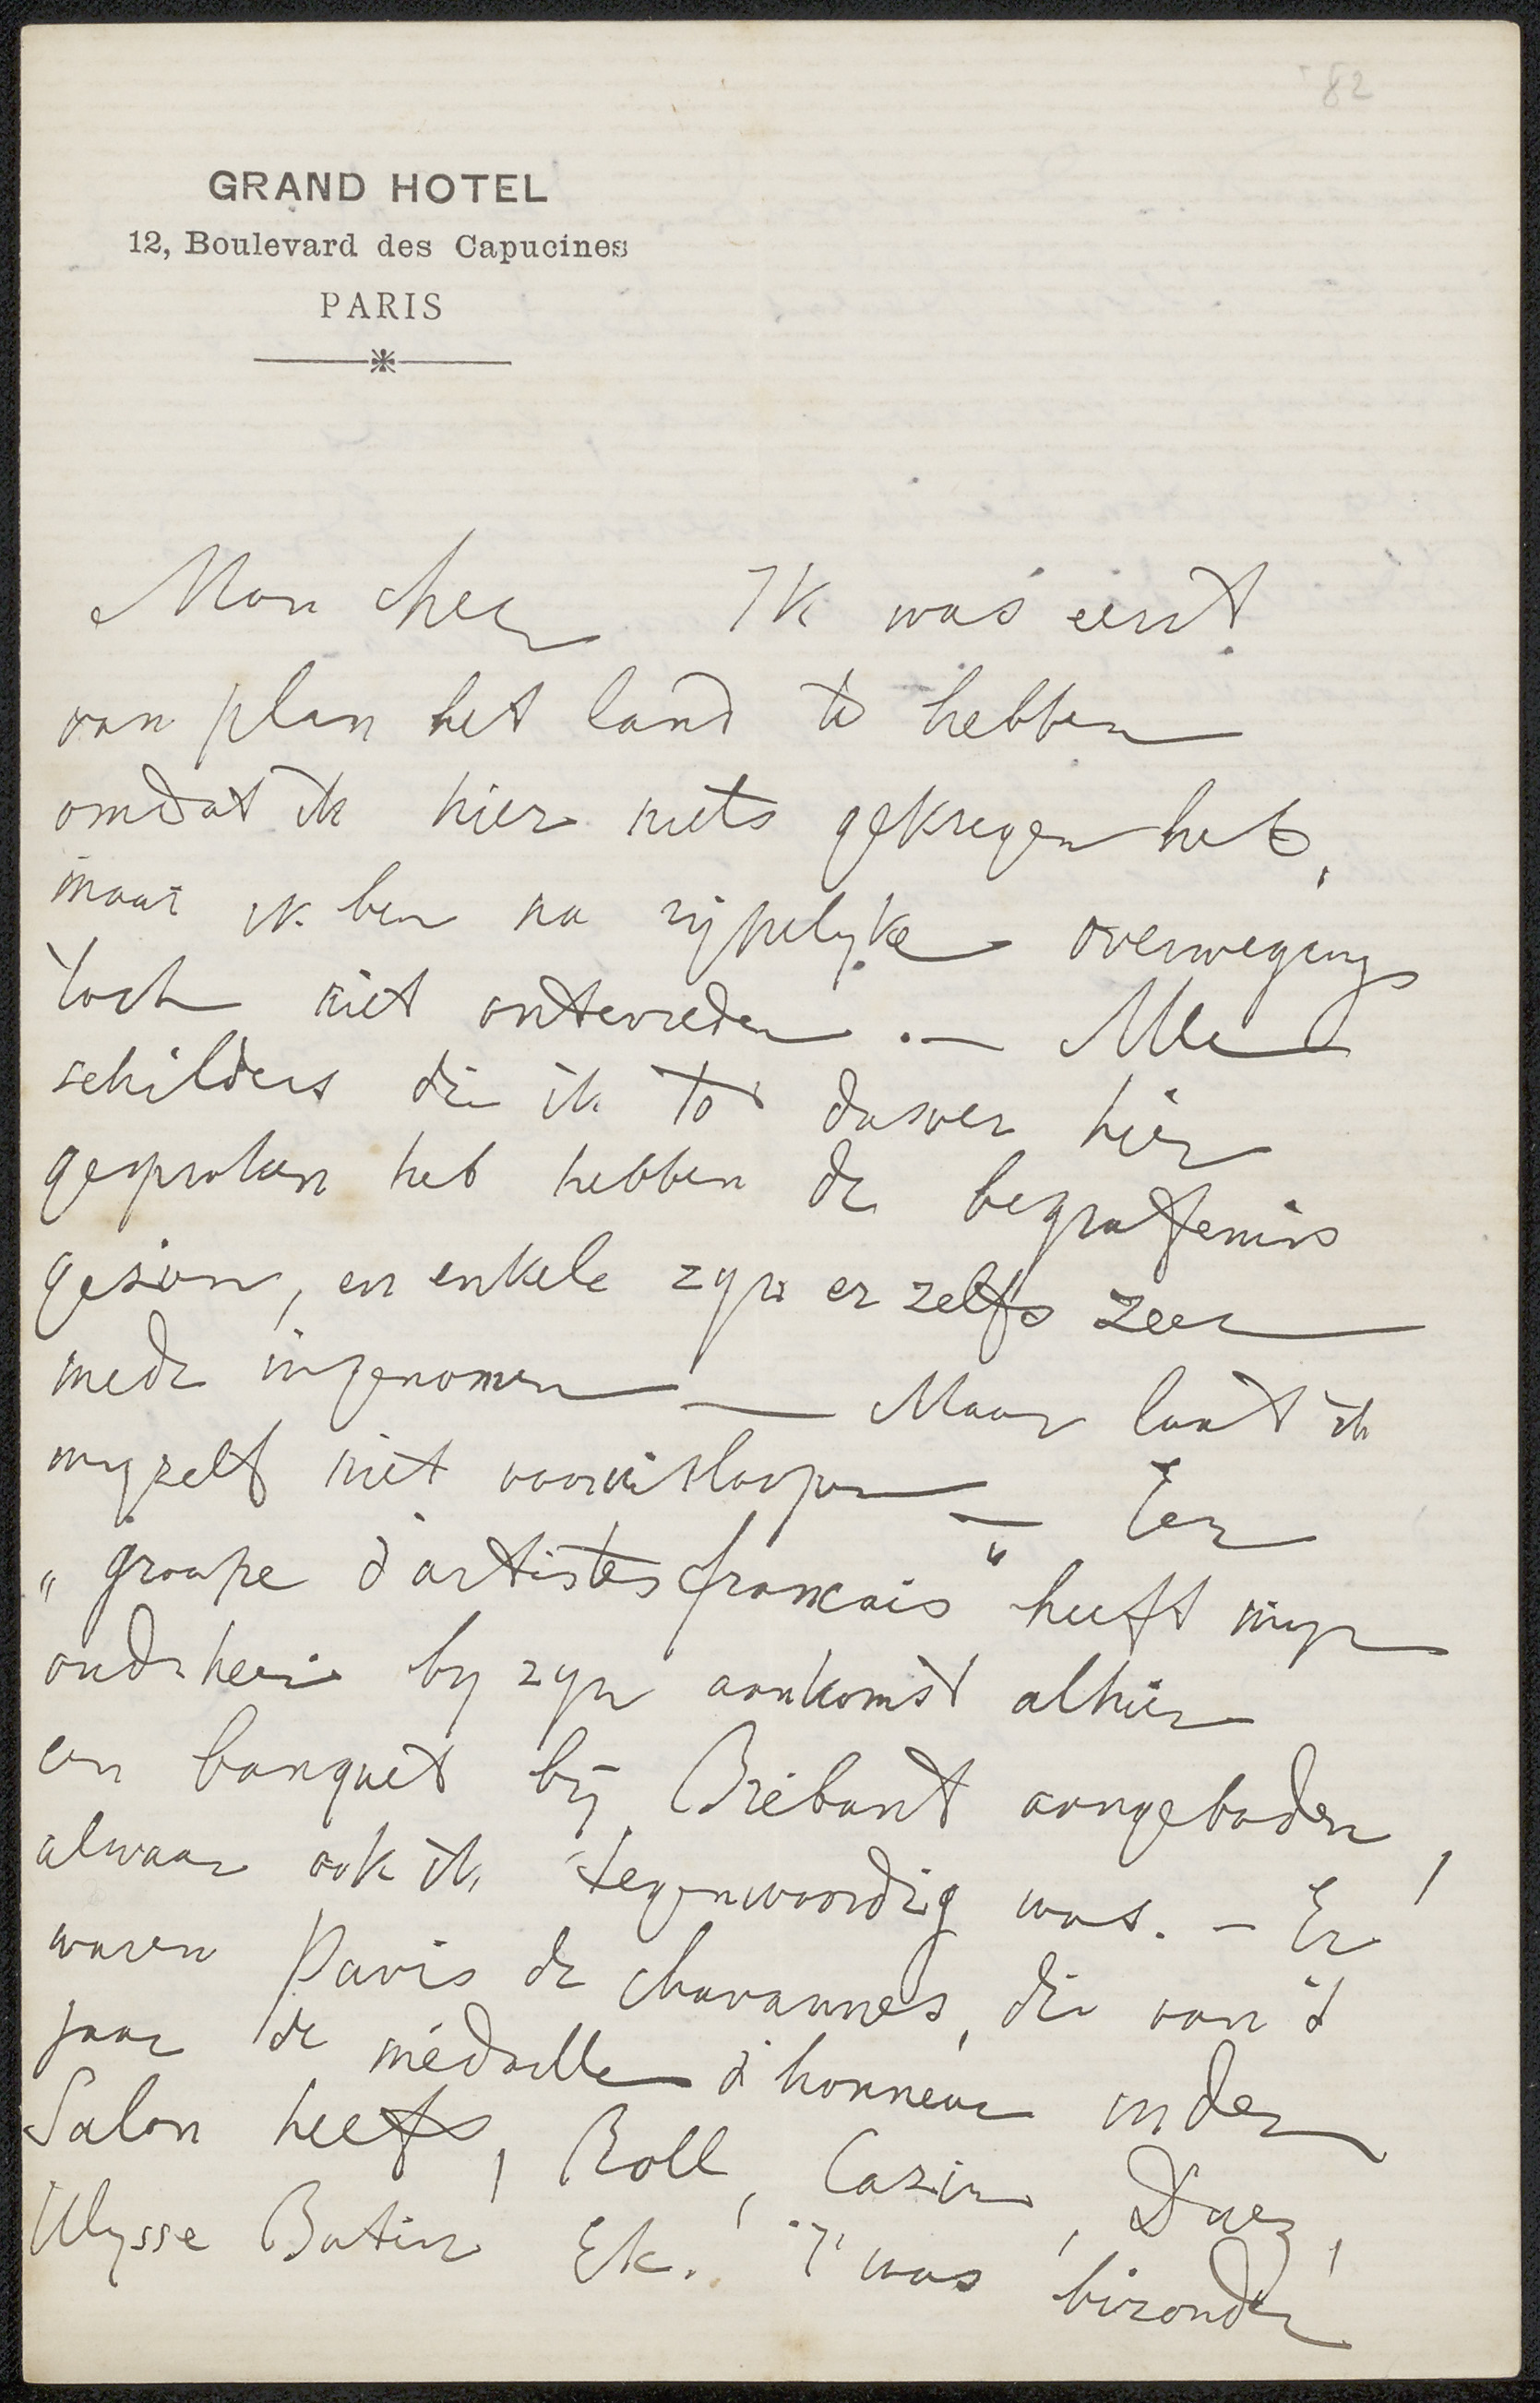 '82
GRAND HOTEL
12, Boulevard des Capucines
PARIS
Mon cher Ik was eerst
van plan het land te hebben
omdat ik hier niets gekregen heb,
maar ik ben na rijpelyke overweging
toch niet ontevreden. — Alle
schilders die ik tot dusver hier
gesproken heb hebben de begrafenis
gezien, en enkele zyn er zelfs zeer
mede ingenomen — Maar laat ik
myzelf niet vooruitloopen — Een
„groupe d'artistes francais" heeft myn
oudeheer by zyn aankomst alhier
een banquet bij Brébant aangeboden,
alwaar ook ik tegenwoordig was. — Er
waren Puvis de Chavannes, die van 't
jaar de médaille d'honneur in den
Salon heeft, Roll, Cazin, Duez,
Ulysse Butin Etc. 'T was bizonder